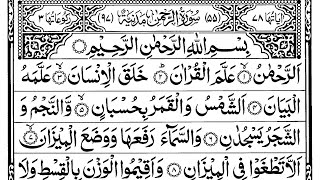 اٰیاتها ۷۸ (۵۵) سُوْرَةُ الرَّحْمٰنِ مَدَنِیَّةٌ (۹۷) رکوعاتها ۳
بِسْمِ اللهِ الرَّحْمٰنِ الرَّحِیْمِ
اَلرَّحْمٰنُ ۙ۱ عَلَّمَ الْقُرْاٰنَ ؕ۲ خَلَقَ الْاِنْسَانَ ۙ۳ عَلَّمَهُ
الْبَیَانَ ۴ اَلشَّمْسُ وَ الْقَمَرُ بِحُسْبَانٍ ۪۵ وَّ النَّجْمُ وَ
الشَّجَرُ یَسْجُدٰنِ ۶ وَ السَّمَآءَ رَفَعَهَا وَ وَضَعَ الْمِیْزَانَ ۙ۷
اَلَّا تَطْغَوْا فِی الْمِیْزَانِ ۸ وَ اَقِیْمُوا الْوَزْنَ بِالْقِسْطِ وَ لَا